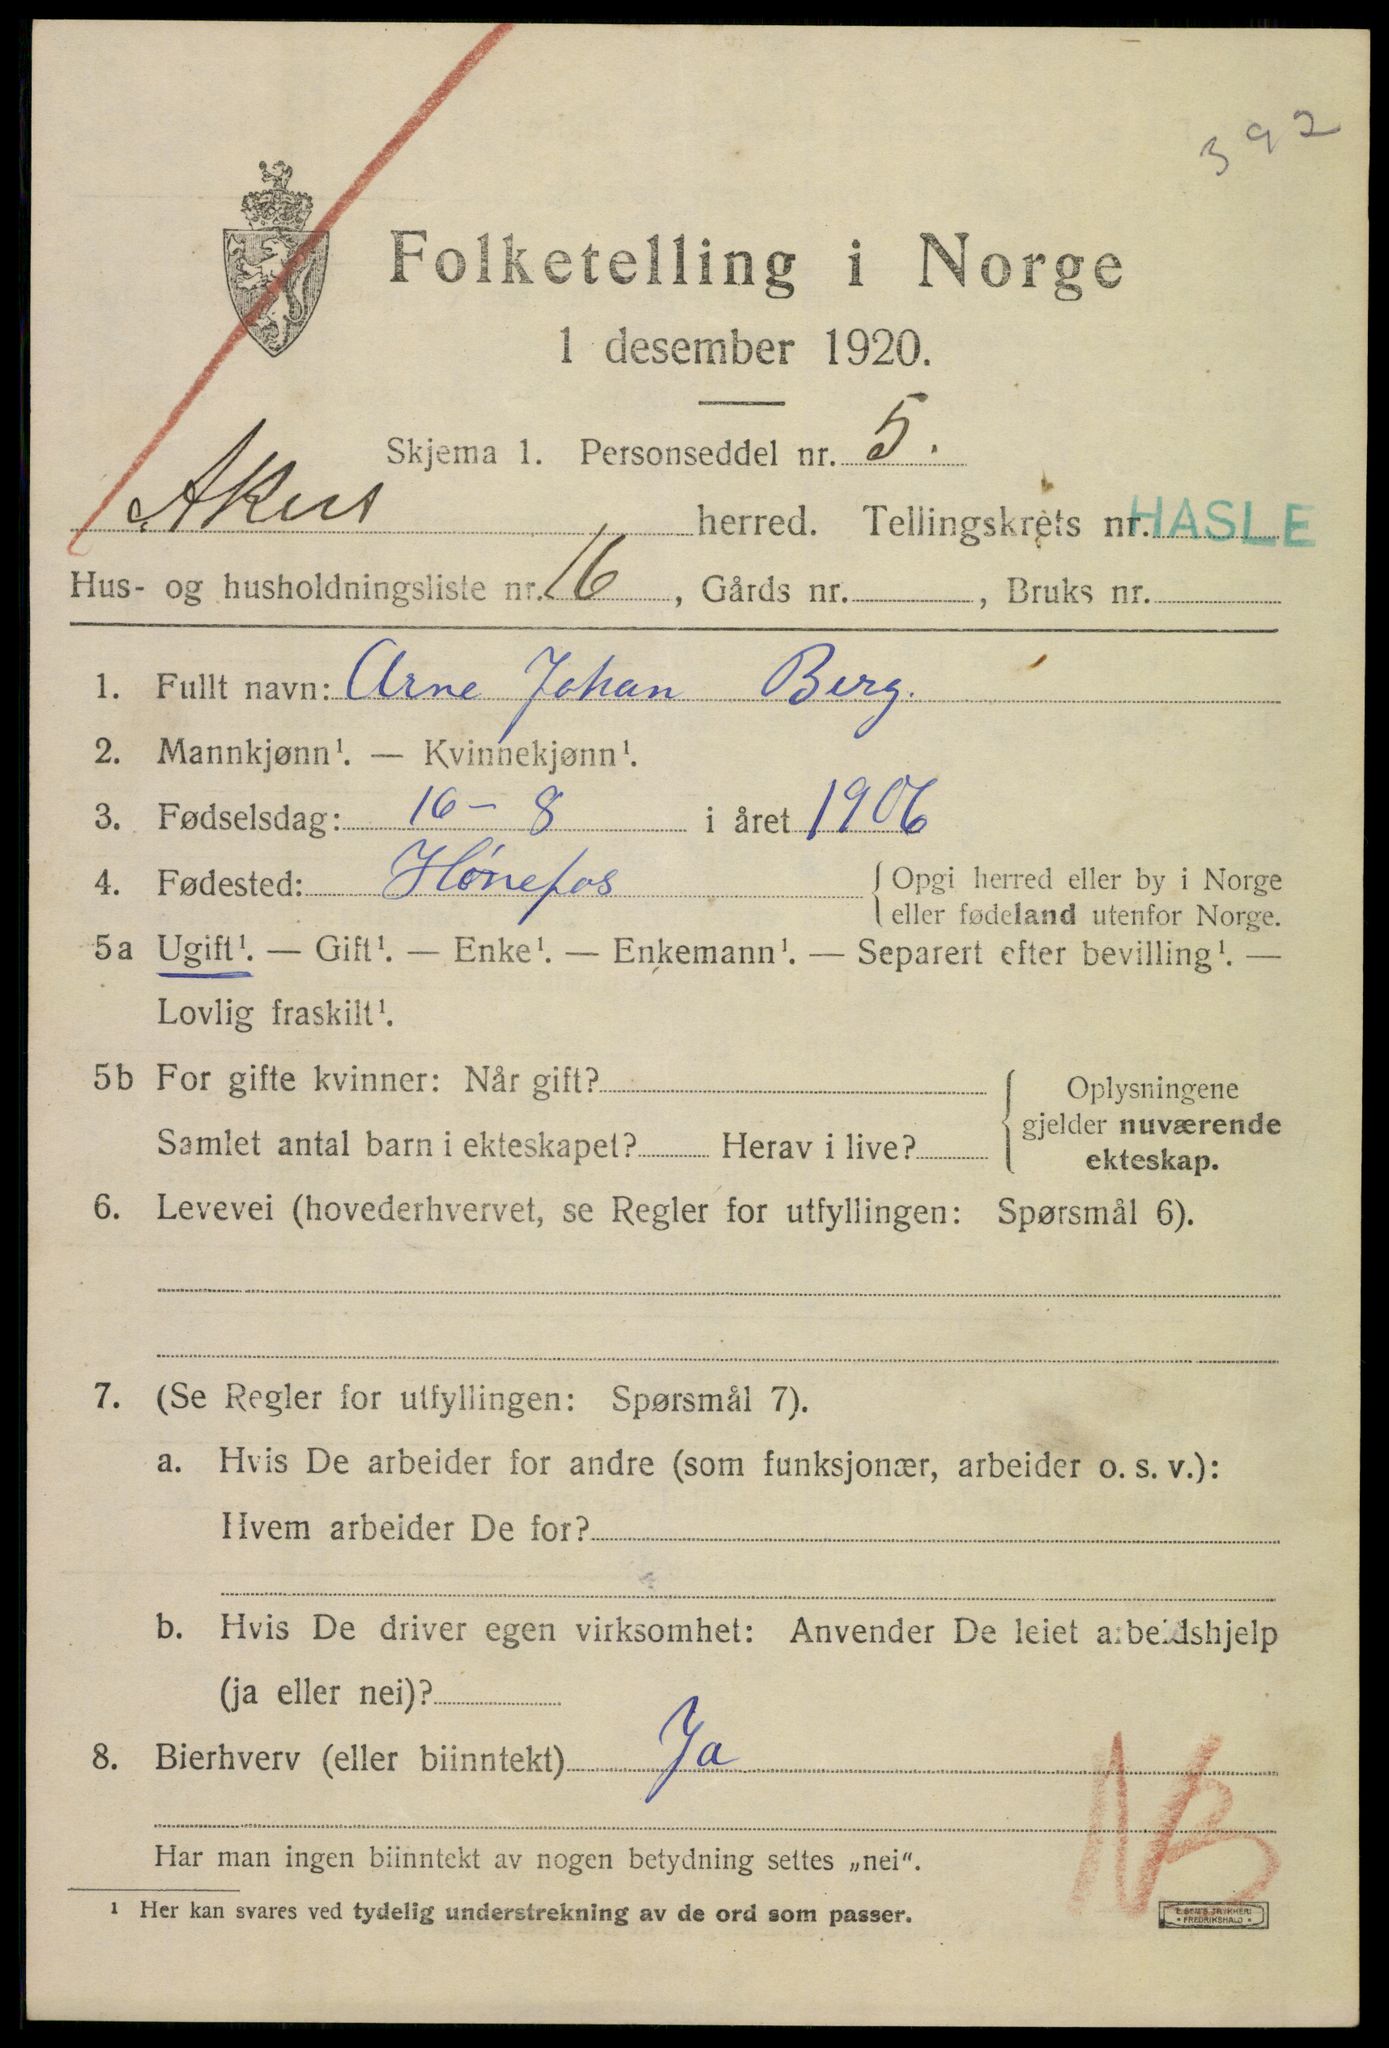 392
Folketelling i Norge
1 desember 1920.
Skjema 1. Personseddel nr. 5.
Akers herred. Tellingskrets nr. HASLE
Hus- og husholdningsliste nr. 16, Gårds nr. , Bruks nr.
1. Fullt navn: Arne Johan Berg.
2. Mannkjønn¹. — Kvinnekjønn¹.
3. Fødselsdag: 16 – 8 i året 1906
4. Fødested: Hønefos {Opgi herred eller by i Norge
eller fødeland utenfor Norge.
5a Ugift¹. — Gift¹. — Enke¹. — Enkemann¹. — Separert efter bevilling¹. —
Lovlig fraskilt¹.
5b For gifte kvinner: Når gift?
Samlet antal barn i ekteskapet? Herav i live?
{Oplysningene
gjelder nuværende
ekteskap.
6. Levevei (hovederhvervet, se Regler for utfyllingen: Spørsmål 6).
7. (Se Regler for utfyllingen: Spørsmål 7).
a. Hvis De arbeider for andre (som funksjonær, arbeider o. s. v.):
Hvem arbeider De for?
b. Hvis De driver egen virksomhet: Anvender De leiet arbeidshjelp
(ja eller nei)?
8. Bierhverv (eller biinntekt) Ja
Har man ingen biinntekt av nogen betydning settes „nei“.
NB
¹ Her kan svares ved tydelig understrekning av de ord som passer.
E. SEM'S TRYKKERI
* FREDRIKSHALD *